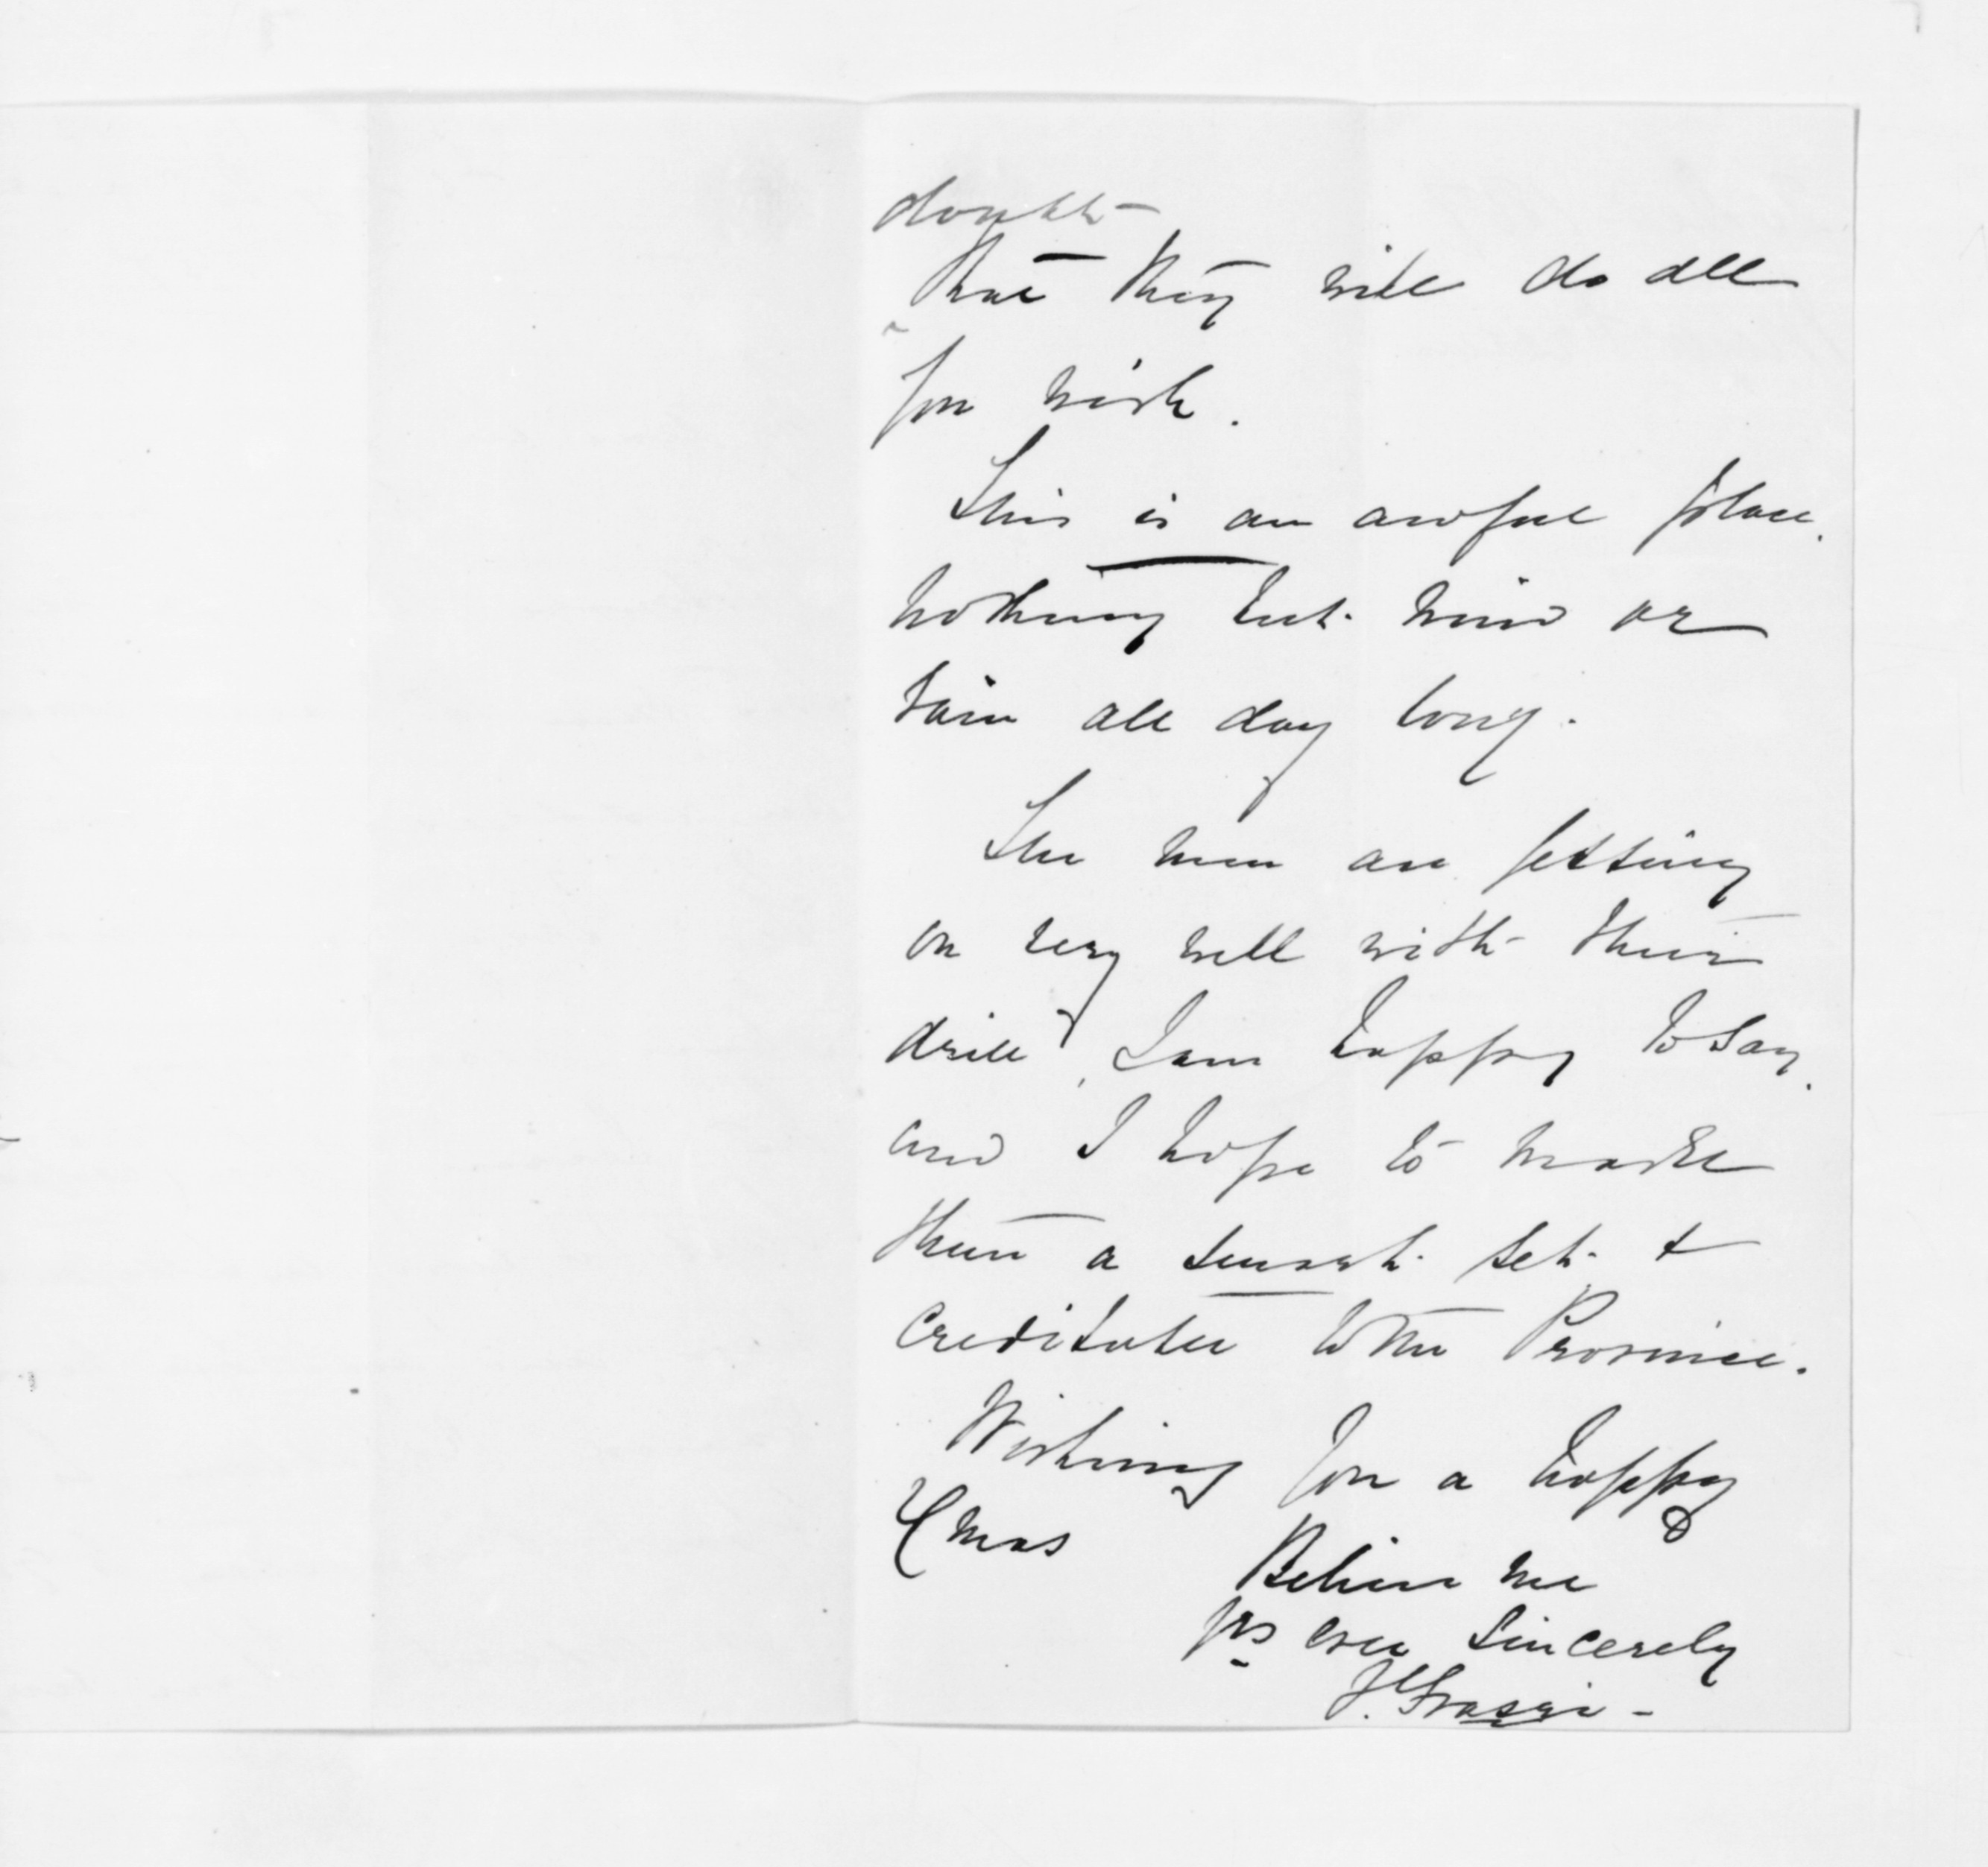 doubt
that they will do all
you wish.
This is an awful place.
nothing but wind or
rain all day long.
The men are getting
on very well with their
drill, I am happy to say.
and I hope to make
them a smart set &
creditable to the Province.
Wishing you a happy
Xmas
Believe me
yrs ever sincerely